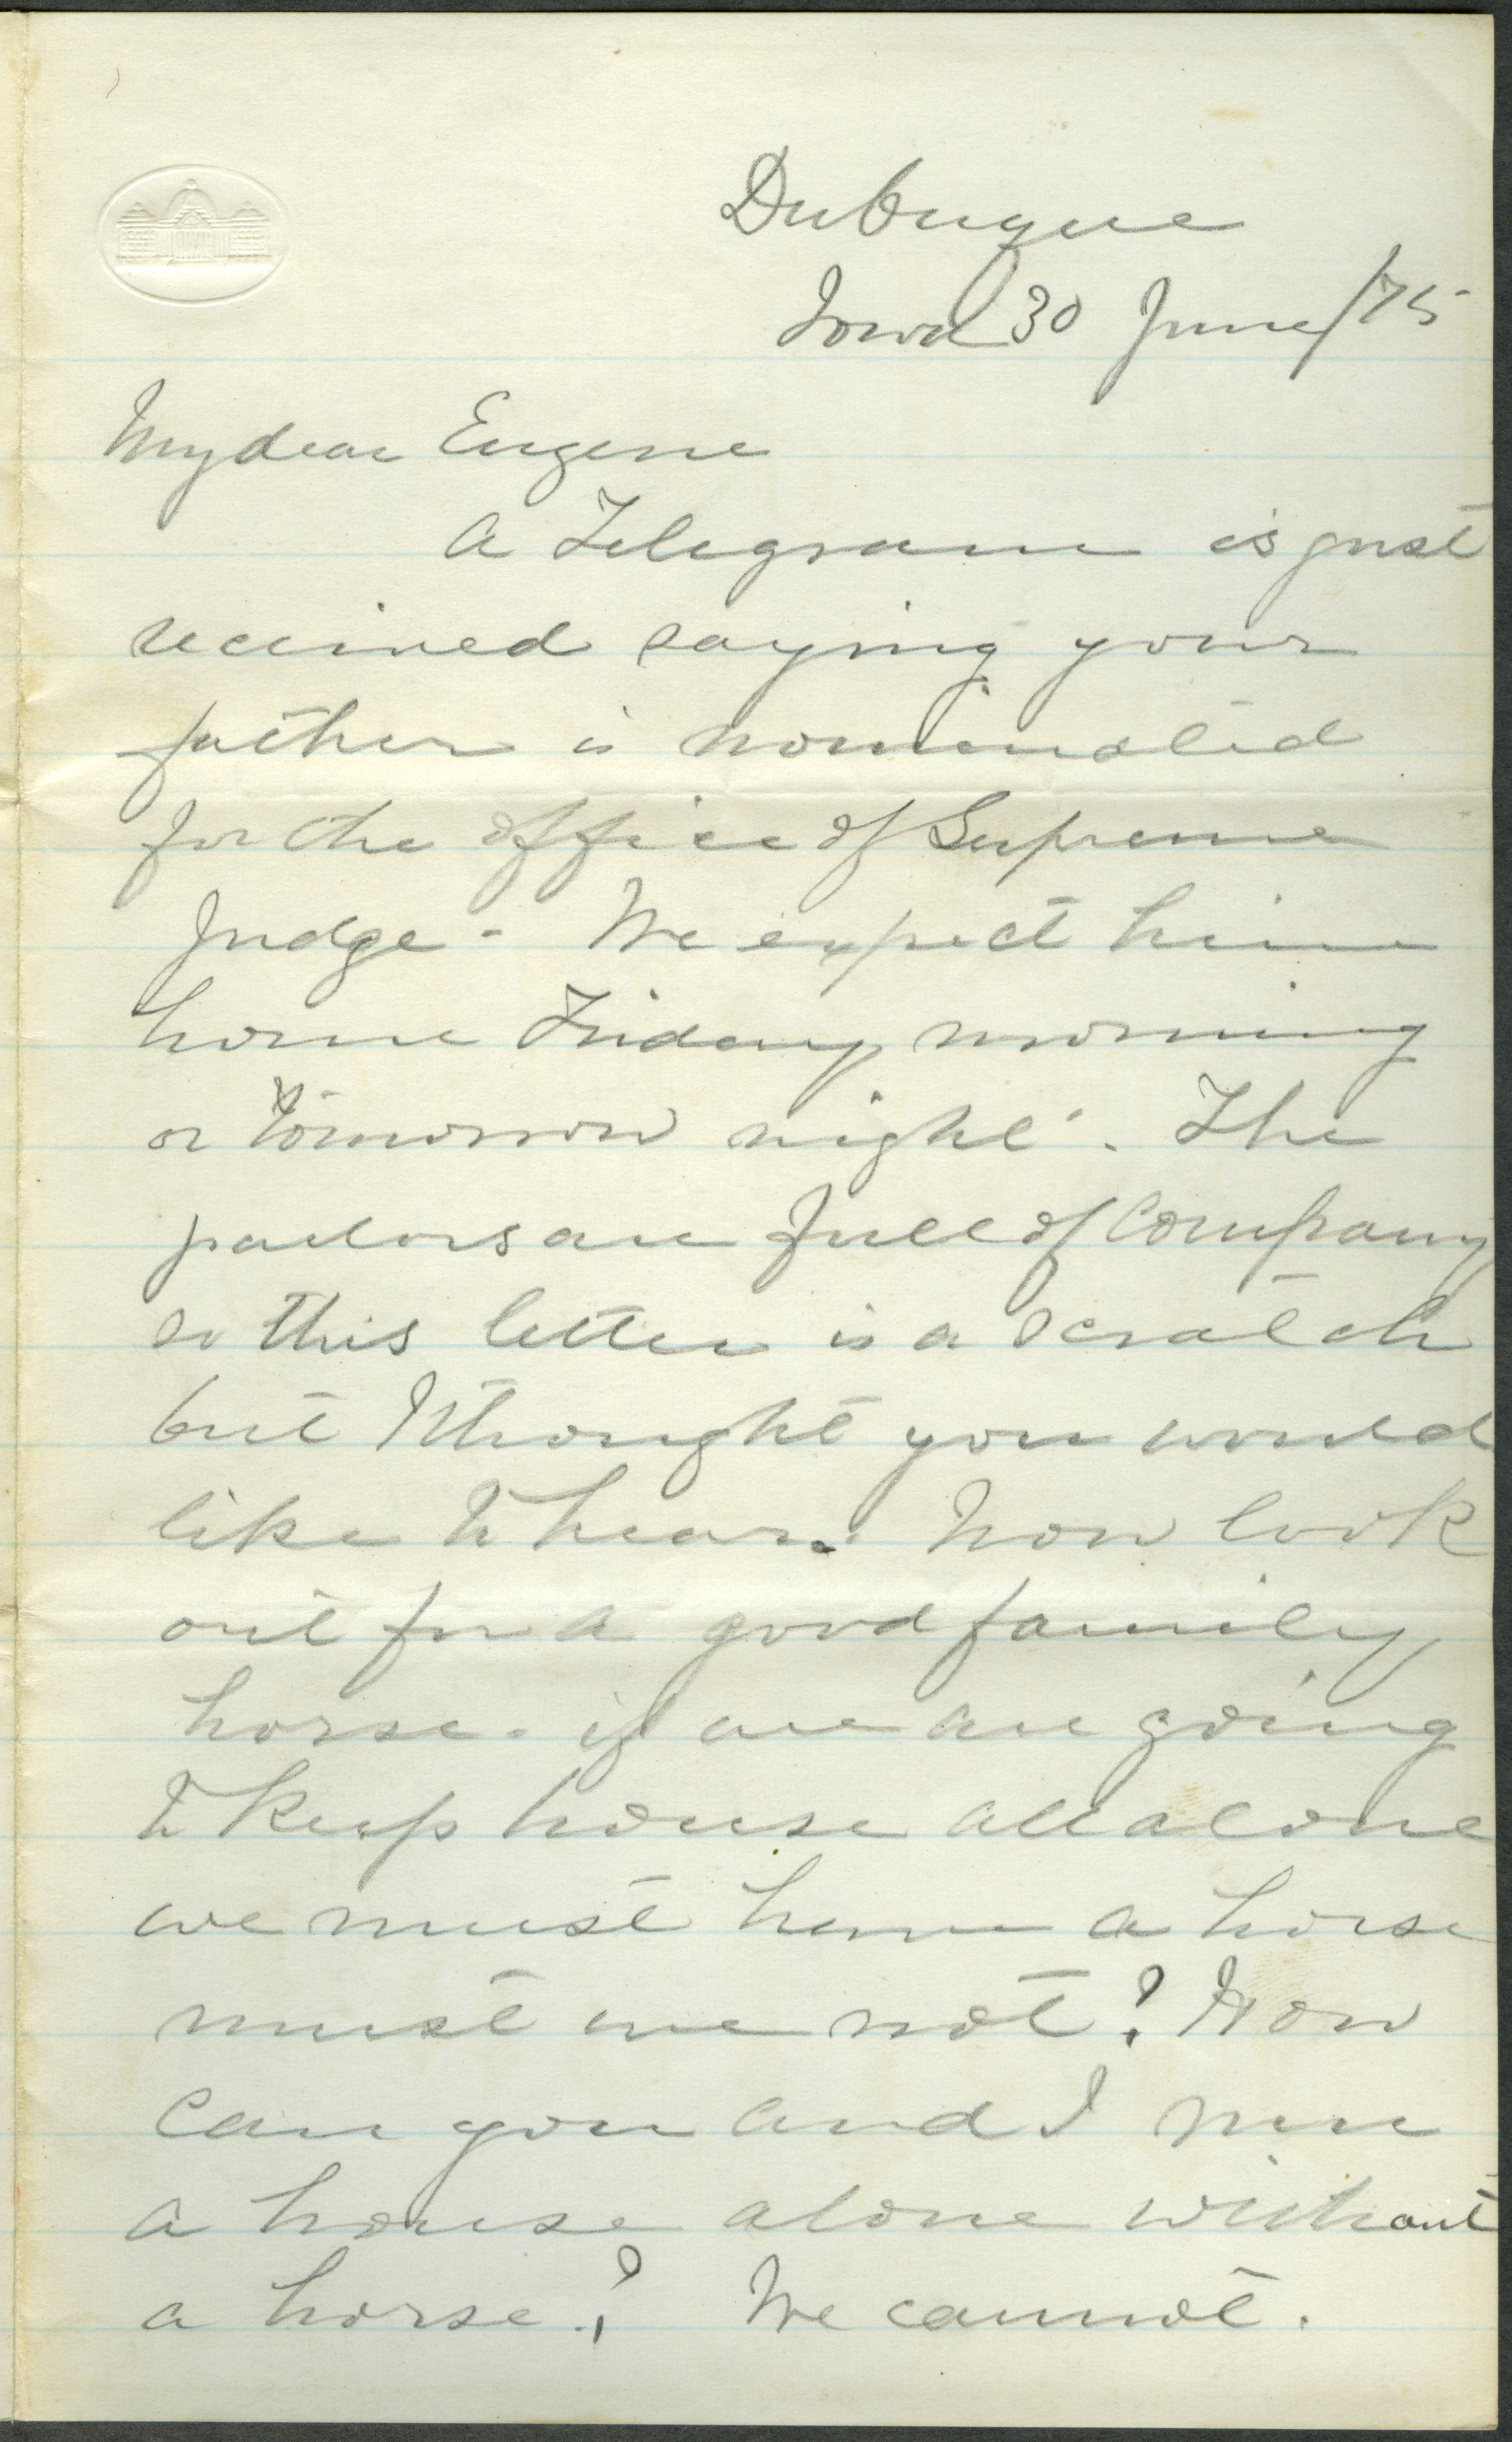 Dubuque
Iowa 30 June/75
My dear Eugene
A Telegram is just
received saying your
father is nominated
for the office of Supreme
Judge - We expect him
home Friday morning
or tomorrow night. The
parlors are full of Company
so this letter is a scratch
but I thought you would
like to hear. Now look
out for a good family
horse - if we are going
to keep house all alone
we must have a horse
must we not? How
can you and I run
a house alone without
a horse? We cannot.